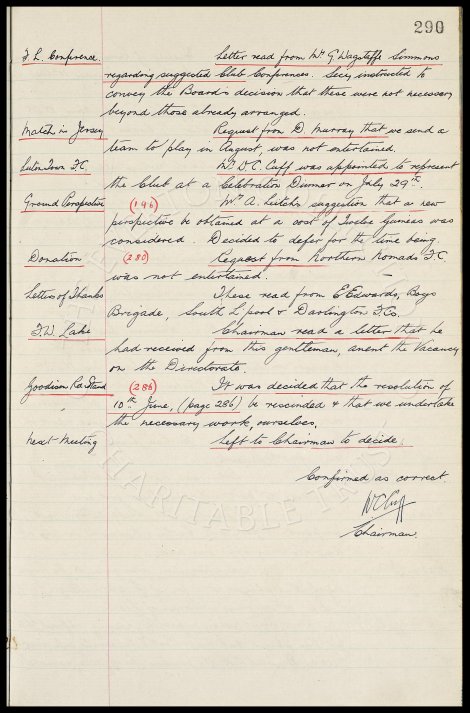 290
F. L. Conference. Letter read from Mr G. Wagstaffe Simmons
regarding suggested Club Conferences. Secy instructed to
convey the Board's decision that these were not necessary
beyond those already arranged.
Match in Jersey Request from D. Murray that we send a
team to play in August, was not entertained.
Luton Town F.C. Mr W.C. Cuff was appointed to represent
the Club at a Celebration Dinner on July 29th.
Ground Perspective (196) Mr. A. suggestion that a new
perspective be obtained at a cost of Twelve Guineas was
considered. Decided to defer for the time being.
Donation (280) Request from Northern Nomads F.C.
was not entertained.
Letters of Thanks These read from E. Edwards, Boys
Brigade, South L'pool & Darlington F.Cs.
F.W. Lake Chairman read a letter that he
had received from this gentleman, anent the Vacancy
on the Directorate.
Goodison Rd Stand (286) It was decided that the resolution of
10th June, (page 286) be rescinded & that we undertake
the necessary work, ourselves.
Next Meeting Left to Chairman to decide.
Confirmed as correct
W C Cuff
Chairman.
CHARITABLE TRUST